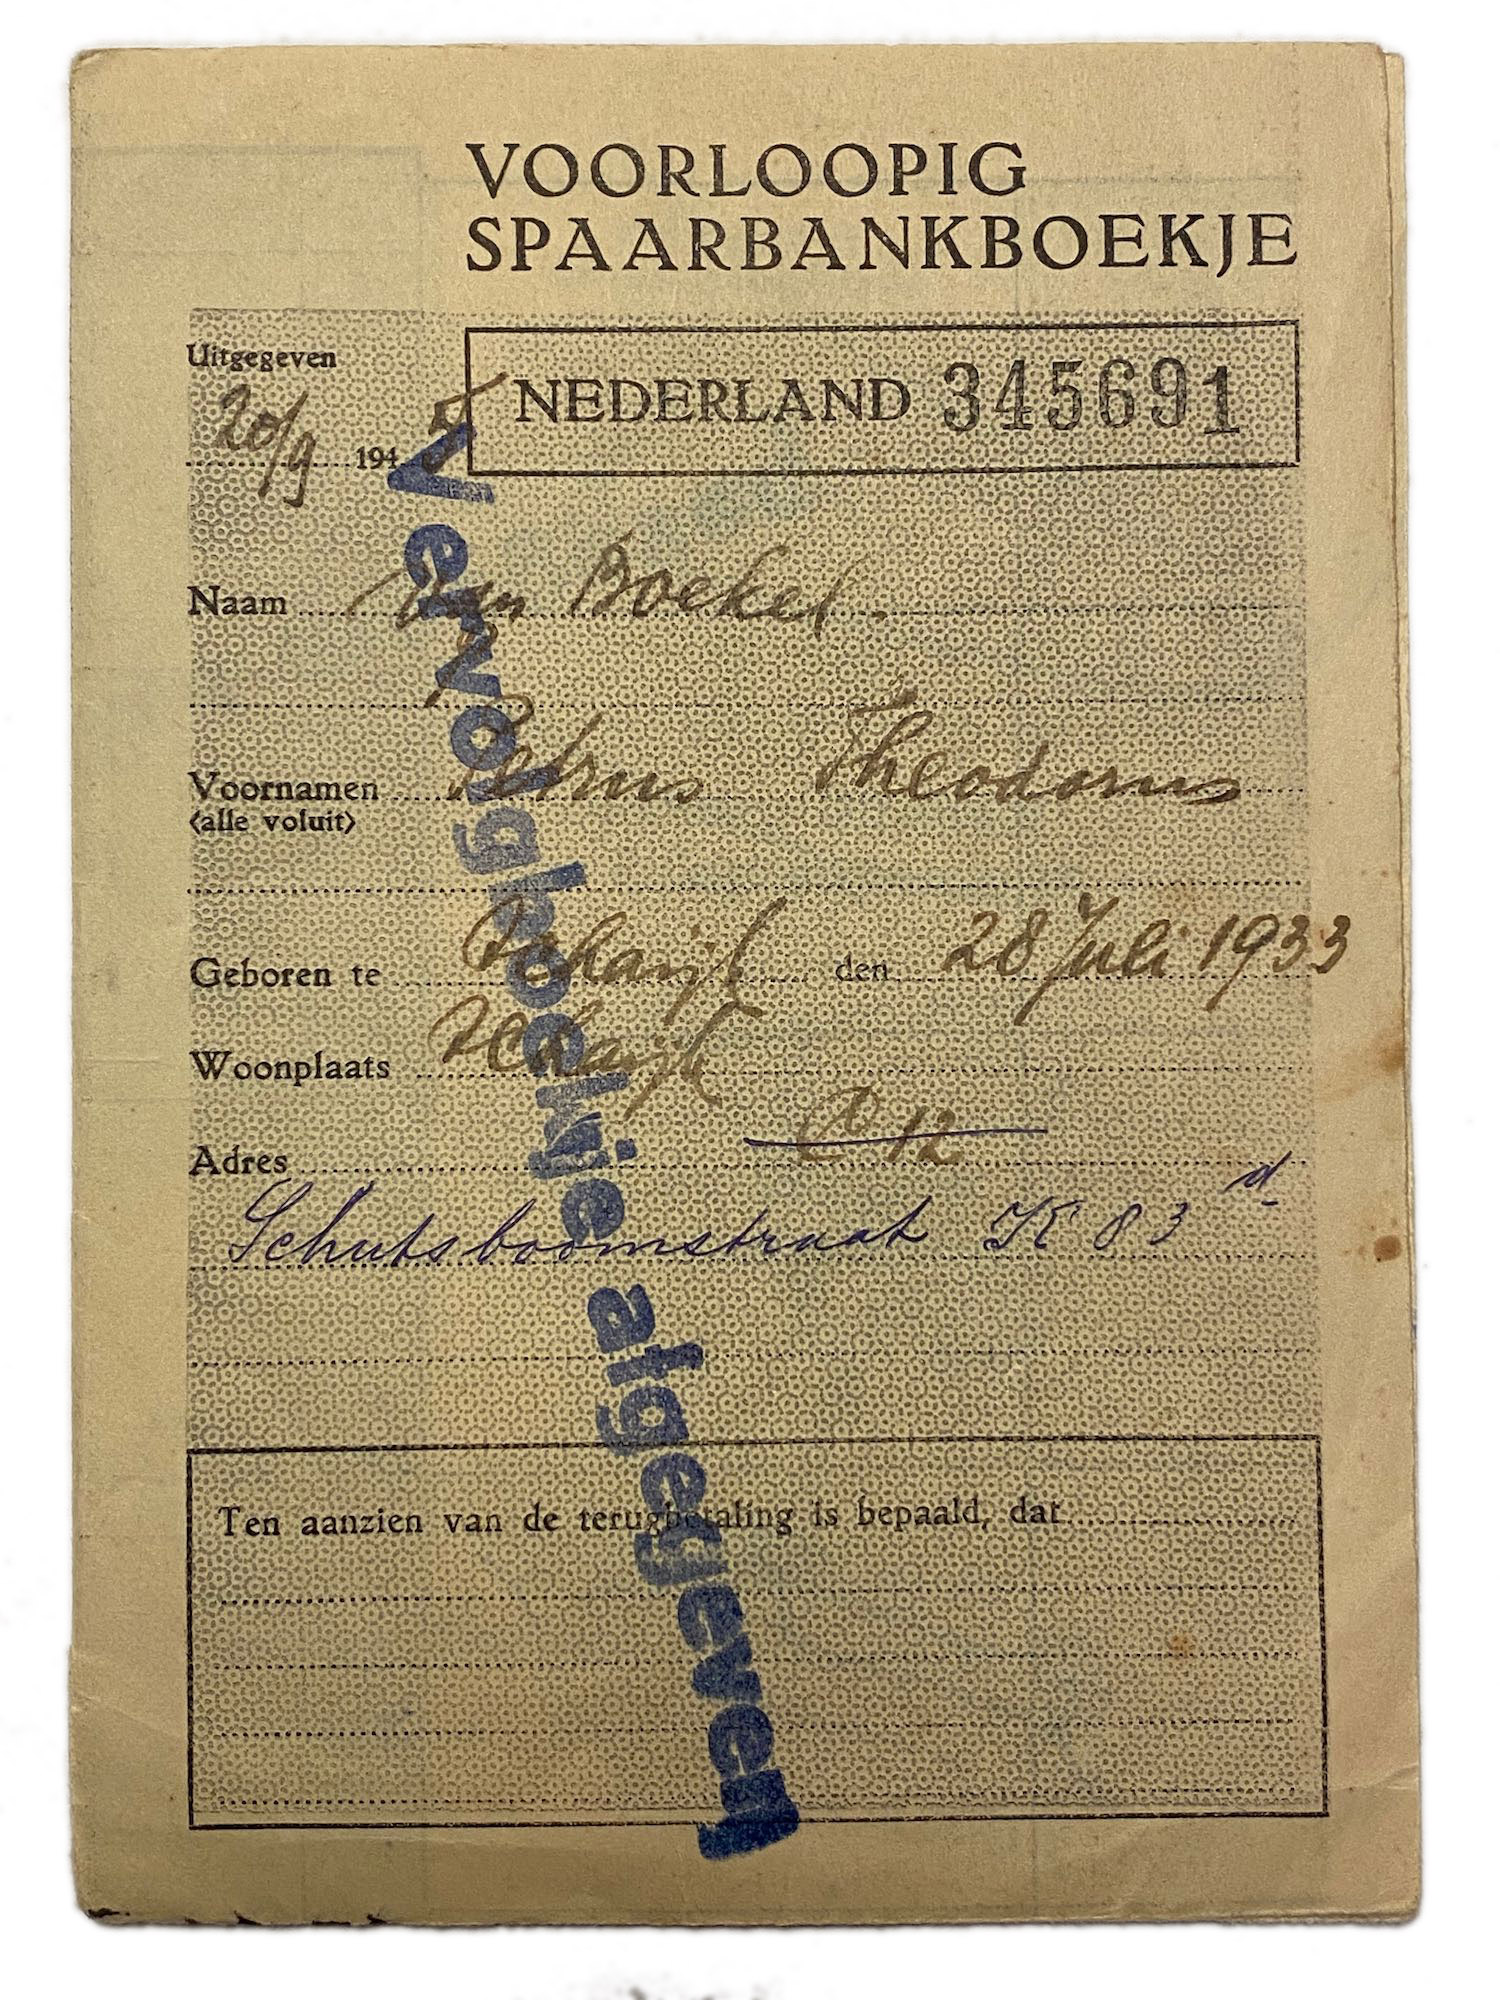 VOORLOOPIG
SPAARBANKBOEKJE
Uitgegeven
20/9 1945
NEDERLAND 345691
Naam van Boekel.
Voornamen Petrus Theodorus
(alle voluit)
Geboren te Schaijk den 28 Juli 1933
Woonplaats Schaijk
Adres 12
Schutsboomstraat K 83 d
Vervolgboekje afgegeven
Ten aanzien van de terugbetaling is bepaald, dat